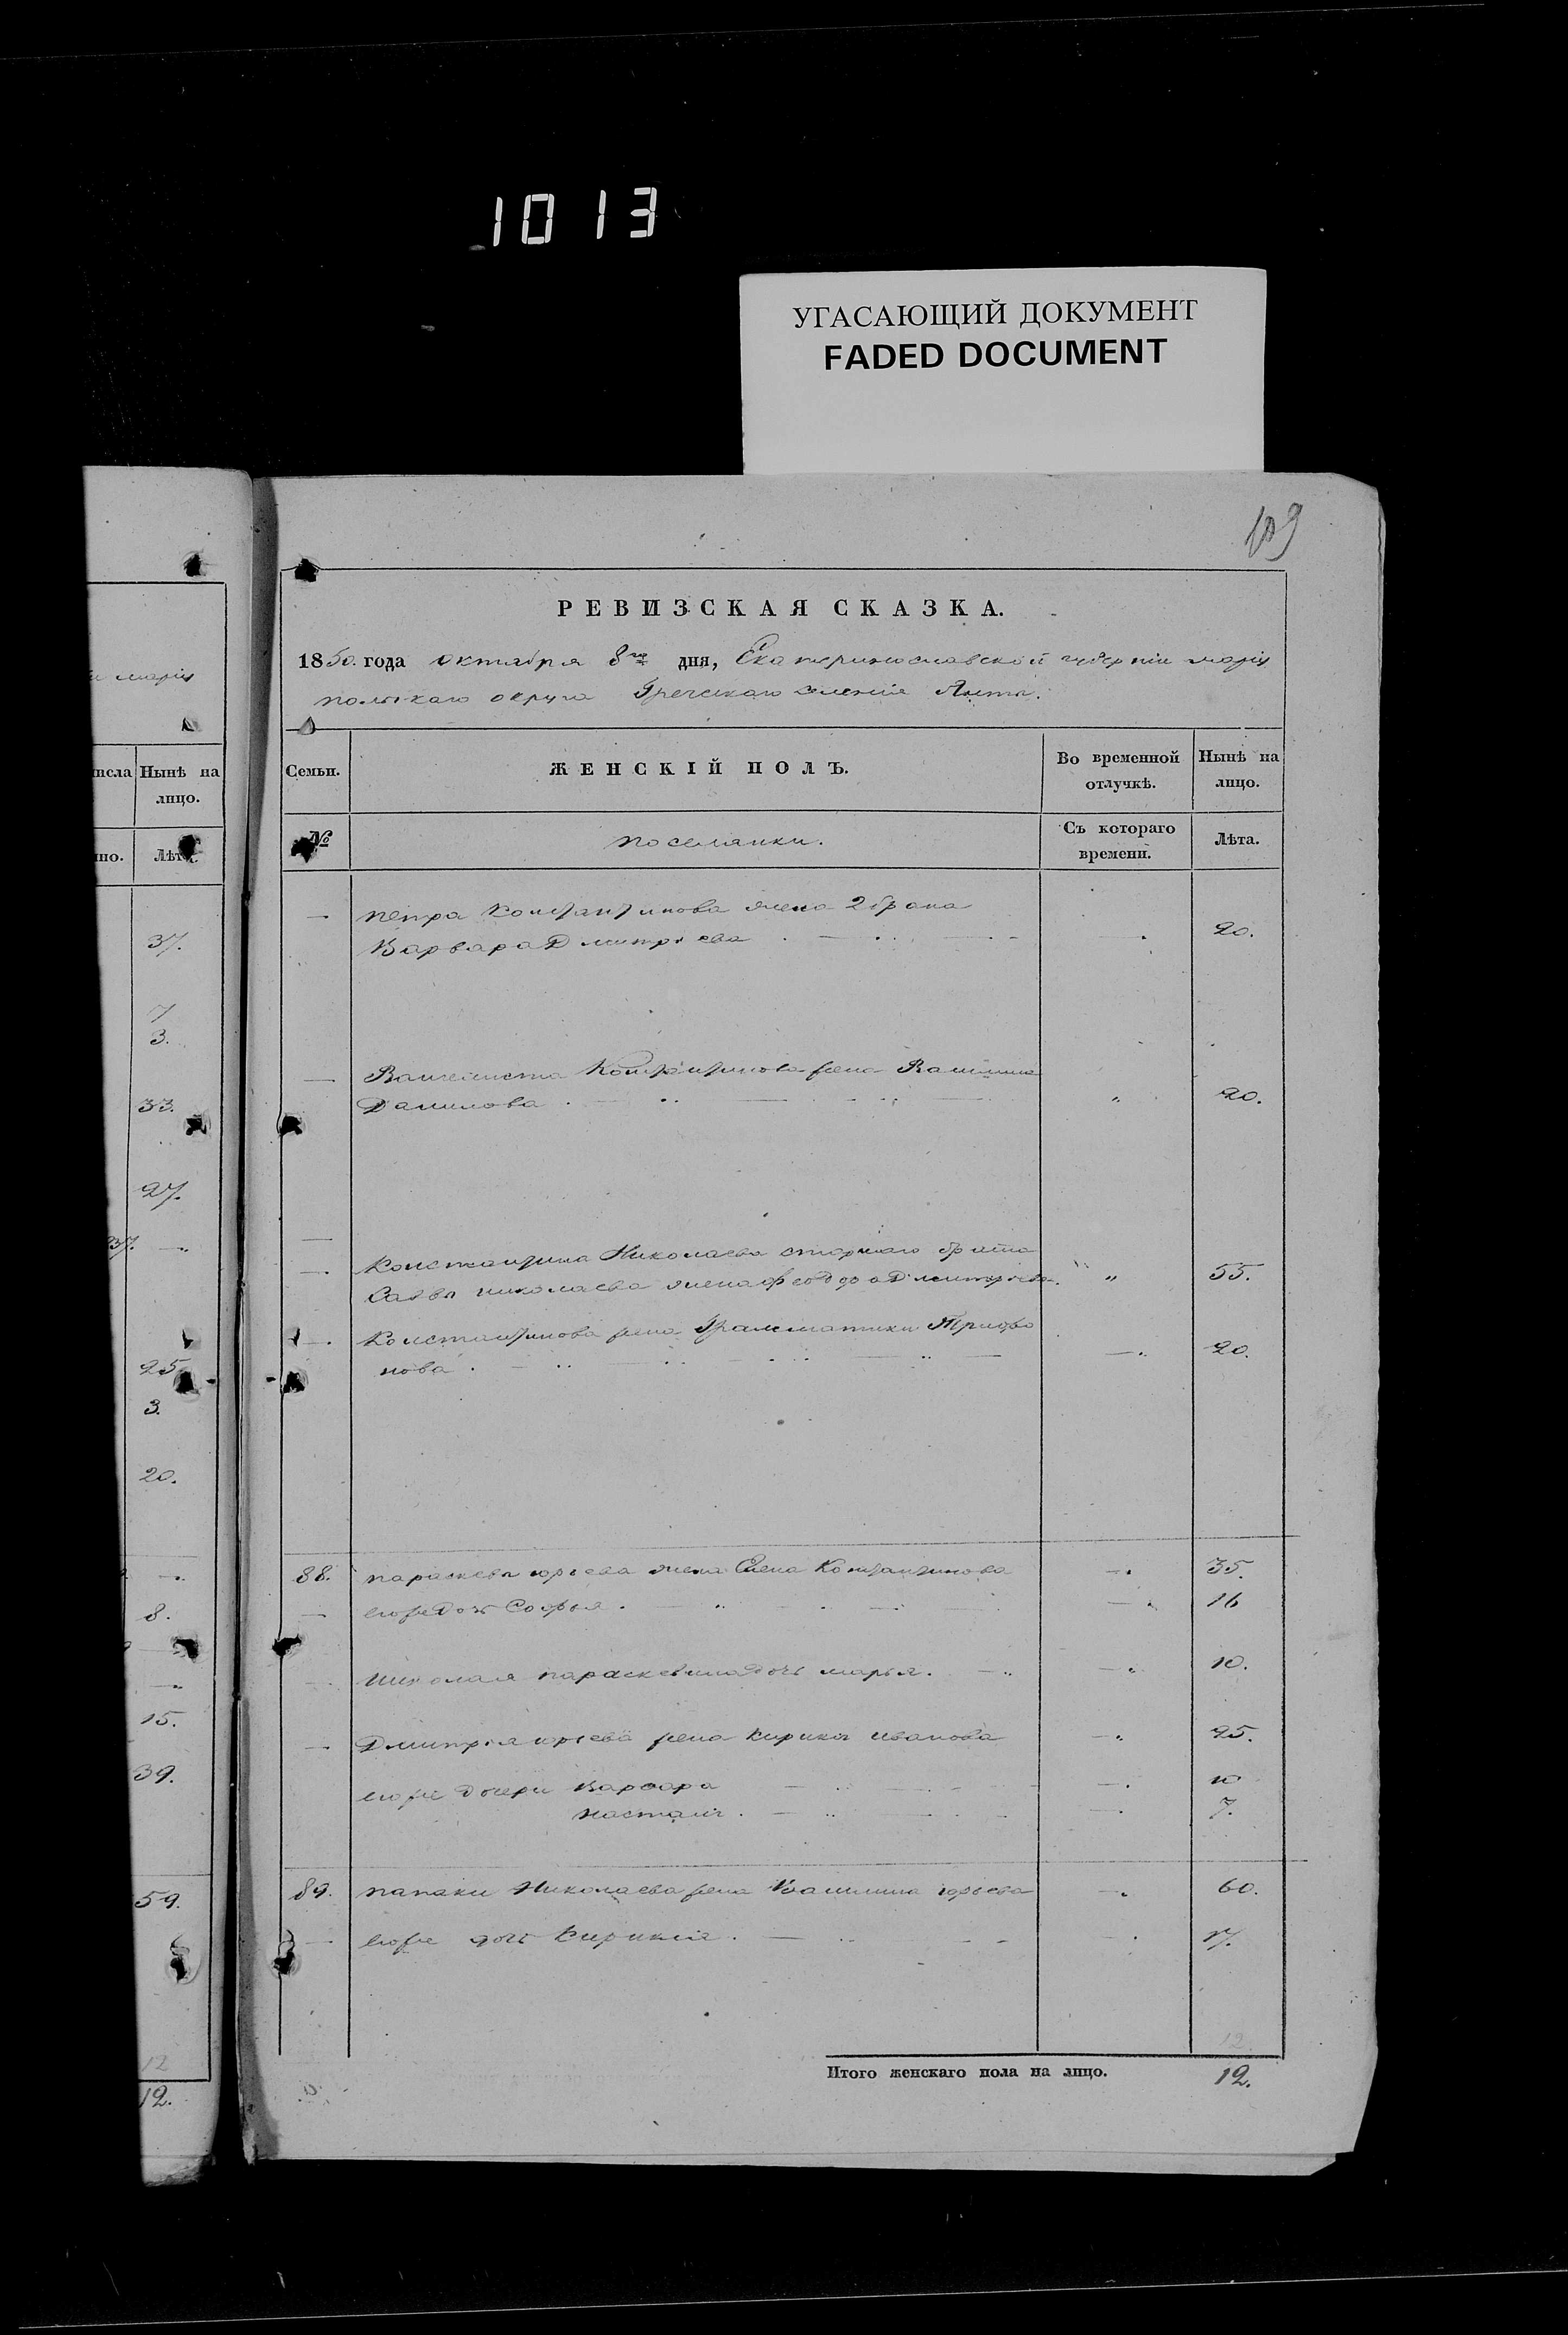 1013
УГАСАЮЩИЙ ДОКУМЕНТ
FADED DOCUMENT
109
РЕВИЗСКАЯ СКАЗКА.
1850. года октября 8го дня, Екатеринославской губерніи марiу
польскаго округа Греческаго селенія Ялты.
Семьи.
ЖЕНСКІЙ ПОЛЪ.
Во временной отлучкѣ.
Нынѣ на лицо.
№
поселянки.
Съ котораго времени.
Лѣта.
— петра Константинова жена 2 брака
Варвара Дмитріева 20.
— Константинова жена
Данилова 20.
— Константина Николаева старшаго брата
Саввы николаева жена Дмитріева 55.
— Константинова жена Трифо
нова 20.
88. параскева юрьева жена Елена Константинова 35.
— егоже дочь Софья 16
— николая параскевина дочь марья. 10.
— Дмитрія юрьева жена иванова 25.
егоже дочери Варвара 10
7.
89. папаки Николаева жена юрьева 60.
— егоже дочь 17.
12
Итого женскаго пола на лицо. 12.
и марiу
исла
Нынѣ на
лицо.
но.
Лѣта.
37.
7
3.
33.
27.
37.
25
3.
20.
8.
15.
39.
59.
12
12.